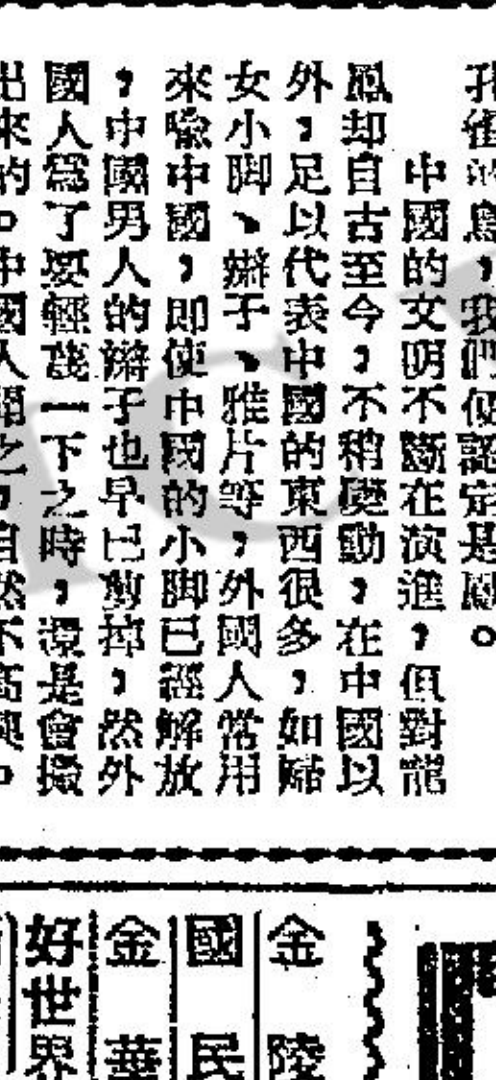 孔雀的鳥，我們便認定是鳳。
中國的文明不斷在演進，但對龍
鳳却自古至今，不稍變動，在中國以
外，足以代表中國的東西很多，如婦
女小脚、辮子、雅片等，外國人常用
來喩中國，即使中國的小脚已經解放
，中國男人的辮子也早已剪掉，然外
國人爲了要輕蔑一下之時，還是會搬
出來的。中國人聞之，自然不高興。
金陵
國民
金華
好世界